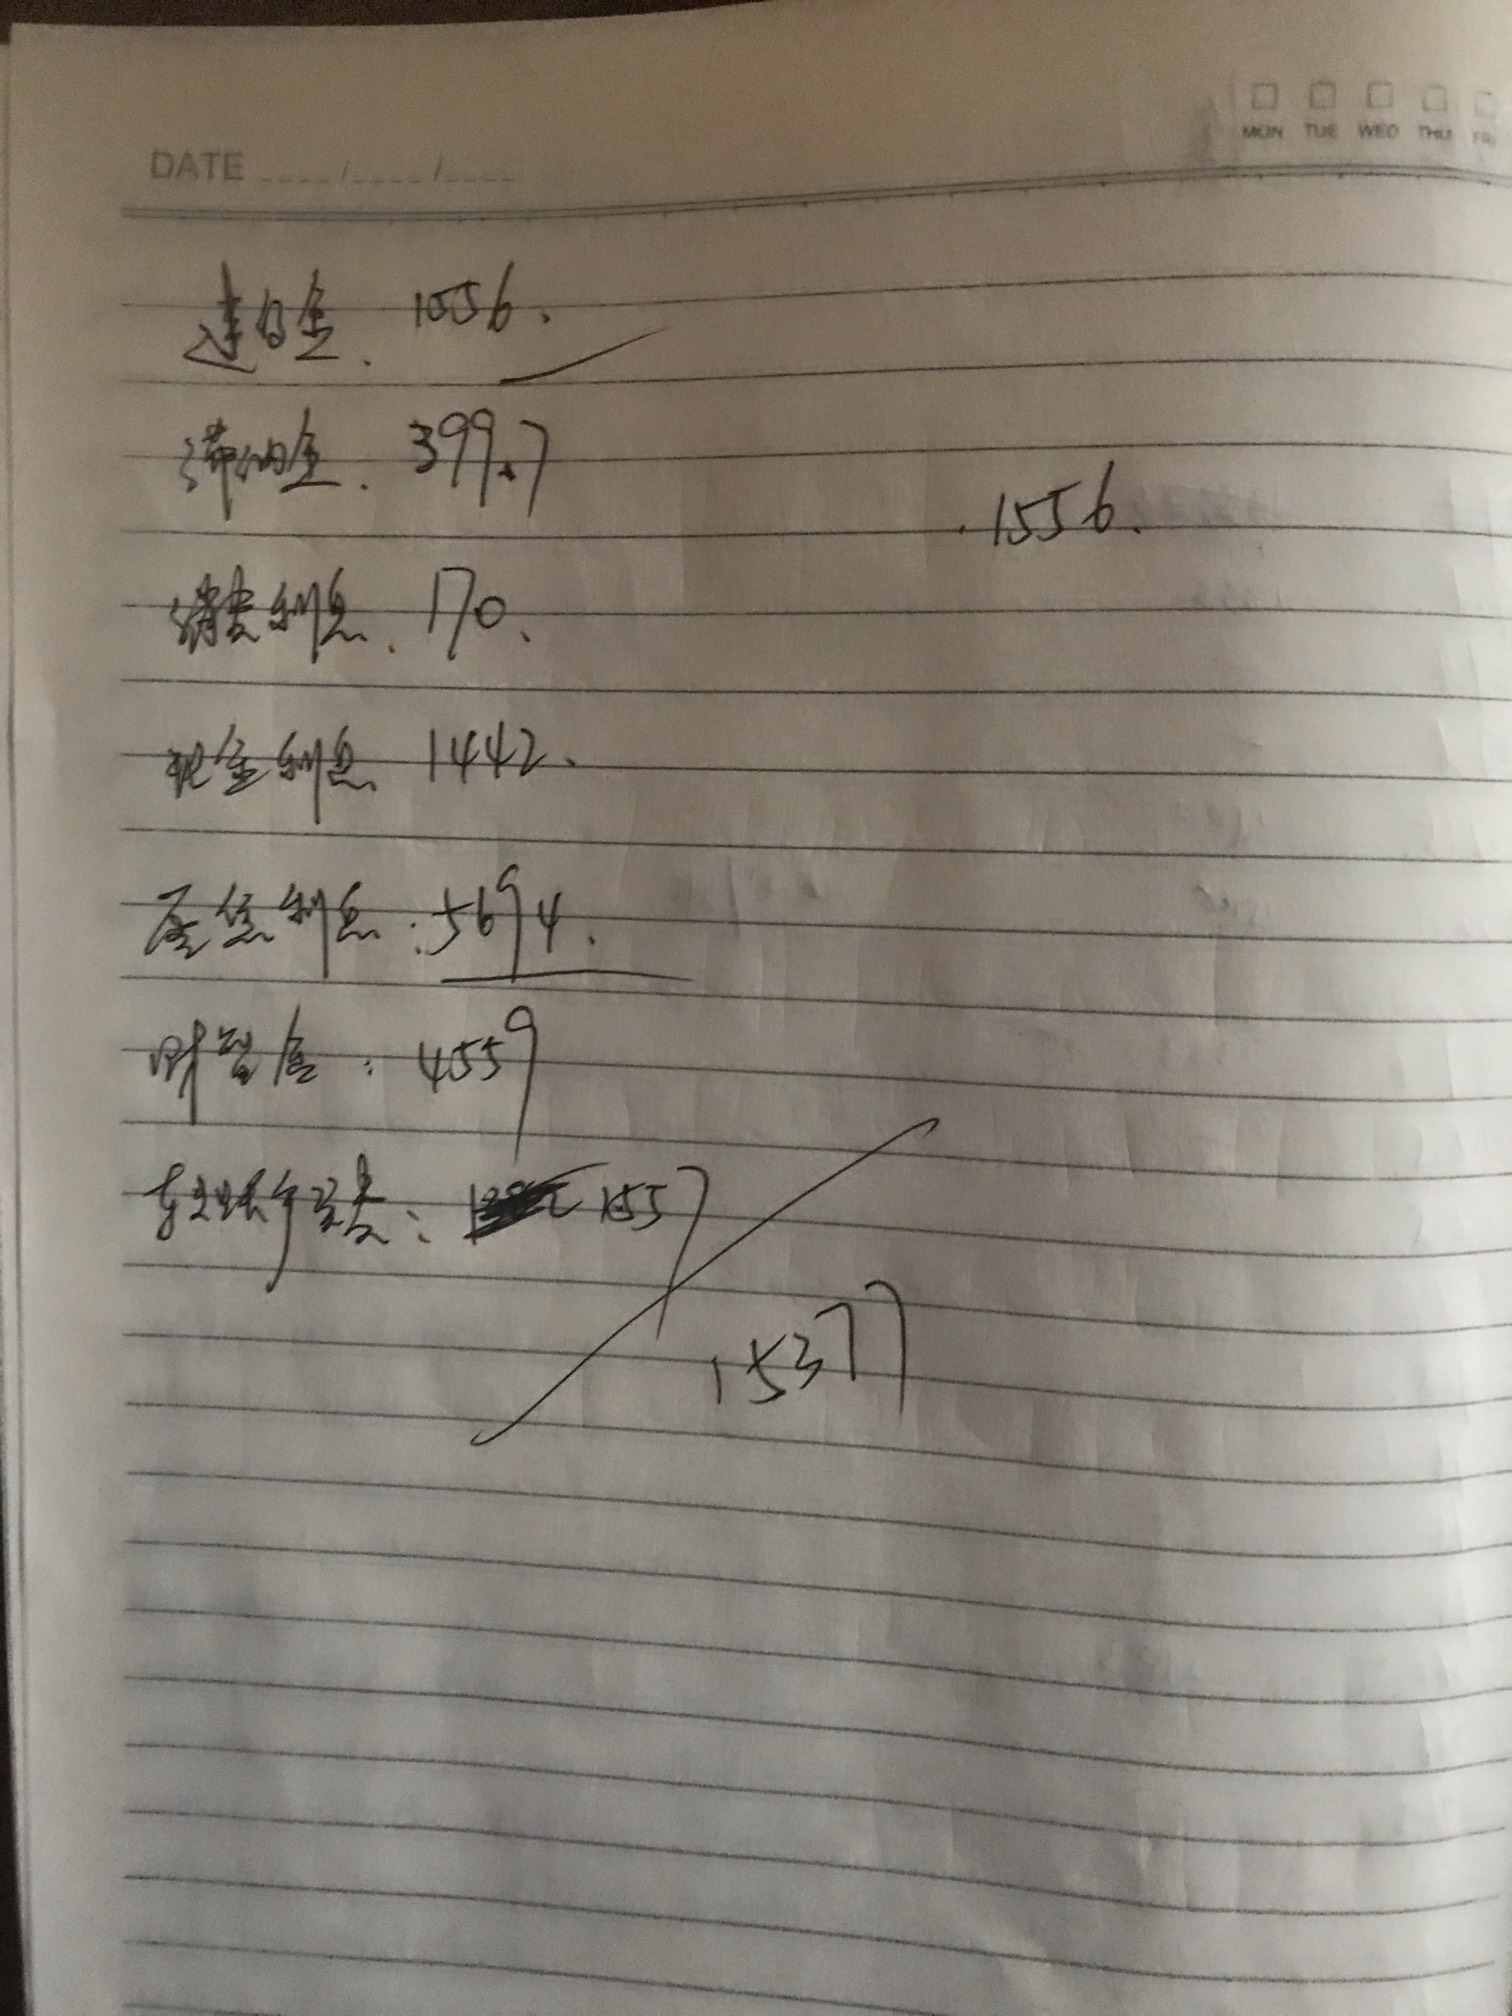 MON TUE WED THU FRI
DATE ____/____/____
违约金. 1556.
滞纳金. 399.7
1556.
消费利息. 170.
现金利息 1442.
利息:5694.
财智金: 4559
1557
15377